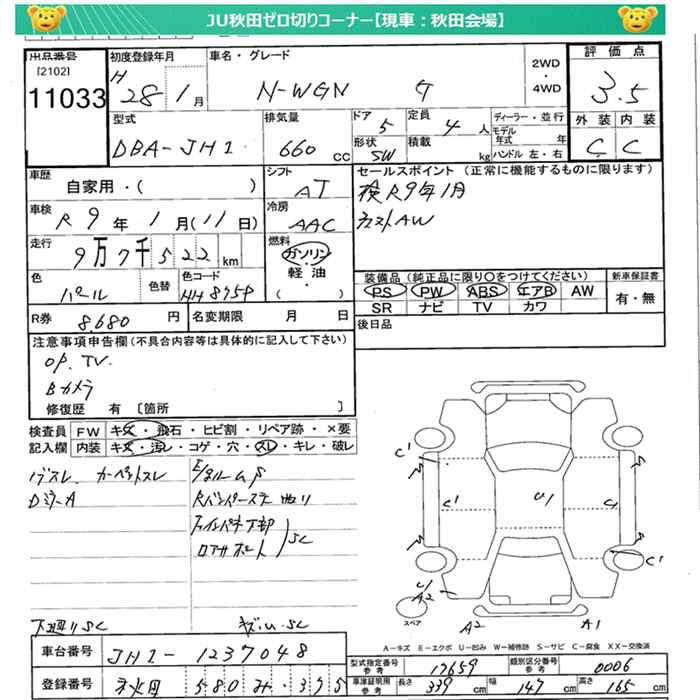 JU秋田ゼロ切りコーナー【現車：秋田会場】
出品番号
[2102]
11033
初度登録年月
H 28年 1月
車名・グレード
N-WGN G
2WD
・
4WD
評価点
3.5
外装 内装
C C
型式
DBA-JH1
排気量
660 cc
ドア
5
形状
SW
定員
4人
積載
kg
ディーラー・並行
モデル年式 年
ハンドル 左・右
車歴
自家用・( )
シフト
AT
車検
R 9年 1月(11日)
冷房
AAC
走行
9万7千522km
燃料
ガソリン
軽油
( )
色
パール
色替
色コード
NH875P
セールスポイント (正常に機能するものに限ります)
検R9年1月
カスタムAW
装備品 (純正品に限り○をつけてください)
PS PW ABS エアB AW
SR ナビ TV カワ
新車保証書
有・無
後日品
R券
8680円
名変期限 月 日
注意事項申告欄(不具合内容等は具体的に記入して下さい)
OP.TV.
Bカメラ
修復歴 有 [箇所 ]
検査員記入欄
FW キズ・飛石・ヒビ割・リペア跡・×要
内装 キズ・汚レ・コゲ・穴・スレ・キレ・破レ
カーペットスレ
DミラーA
下廻りSC
キズ.U.SC
C' C' U1 C1 C'
U/A2 A2 A1
スペア
A－キズ E－エクボ U－凹み W－補修跡 S－サビ C－腐食 XX－交換済
車台番号
JH1-1237048
登録番号
秋田 580 み・375
型式指定番号 参考
17659
類別区分番号 参考
0006
車津証明用 参考
長さ 339cm
幅 147cm
高さ 165cm